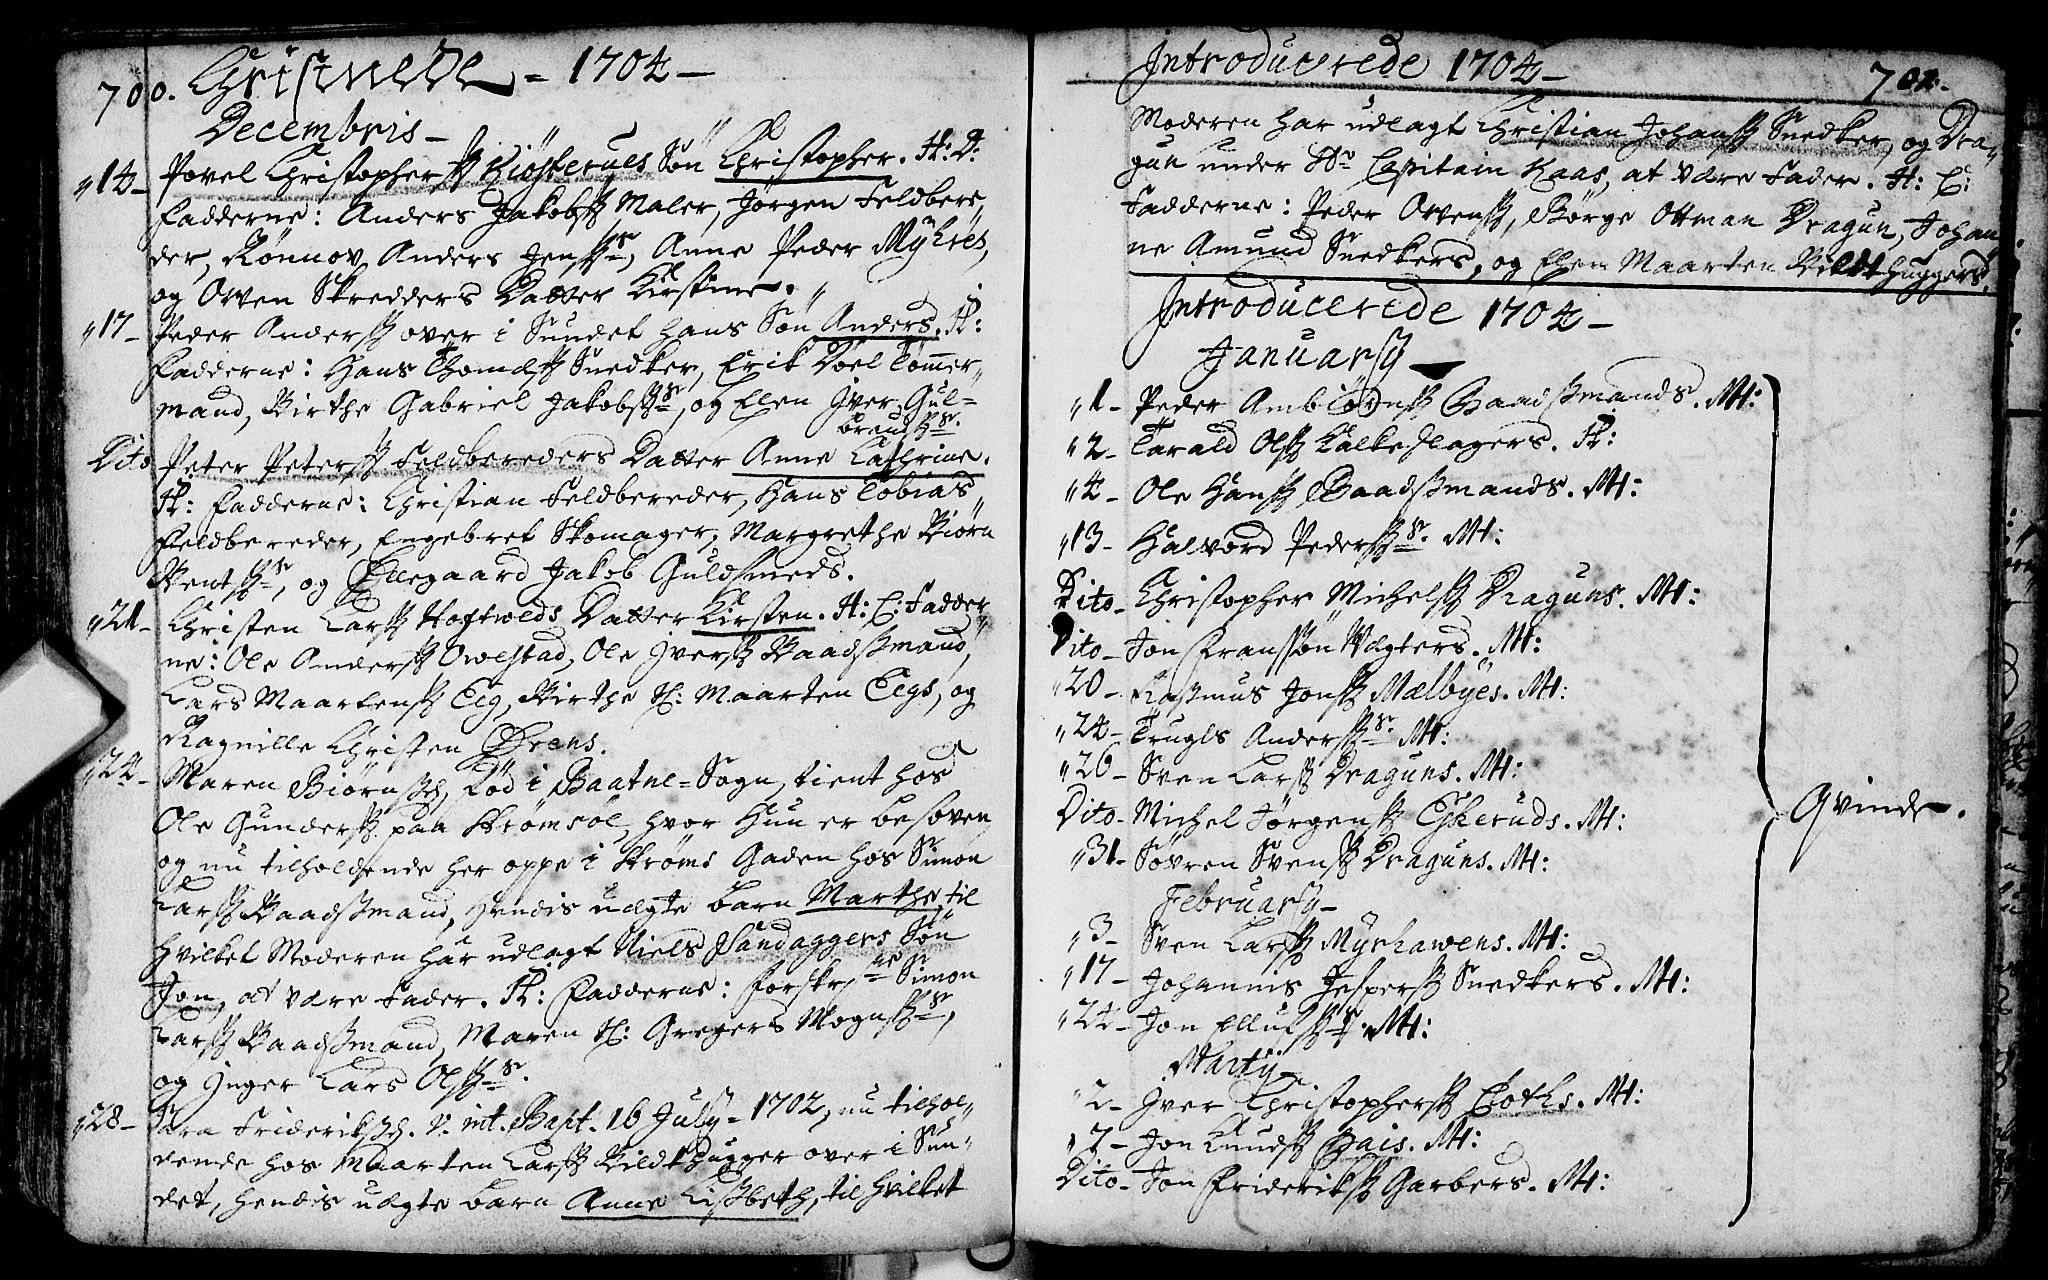 700. Christnede = 1704 –
Decembris –
14 – Povel Christophers Kiøsterues Søn Christopher. H: D:
Fadderne: Anders Jakobs Maler, Jørgen Feldbere„
der, Rønnov Anders Jens, Anne Peder Myhres,
og Oven Skredders Datter Kirstine.
17 – Peder Anders over i Sundet hans Søn Anders. H:
Fadderne: Hans Thomæs Snedker, Erik Doel Tømer„
mand, Birthe Gabriel Jakobs, og Ellen Jver Gul=
brends.
Dito Peter Peters Feldbereders Datter Anne Cathrine.
H: Fadderne: Christian Feldbereder, Hans Tobias
Feldbereder, Engebret Skomager, Margrethe Biørn
Bents, og Ellegaard Jakob Guldsmeds.
21 – Christen Lars Hoftvelds Datter Kirsten. H: C: Fadder„
ne: Ole Anders Owestad, Ole Jvers Baadßmand,
Lars Maartens Eeg, Birthe Maarten Eegs, og
Ragnille Christen Ørens.
24 – Maren Biørns, Fød i Baatne=Sogn, tient hos
Ole Gunders paa Strømsøe, hvor Hun er besoven,
og nu tilholdende her oppe i Strøms Gaden hos Simon
Lars Baadßmand, Hendis uægte barn Marthe, til
hvilket Moderen har udlagt Niels Sandaggers Søn
Jon, at være Fader. H: Fadderne: Forskr. Simon
Lars Baadßmand, Maren Gregers Mogns,
og Jnger Lars Ols.
28 – Sara Frideriks. v. int. Bapt. 16 July – 1702, nu tilhol„
dende hos Maarten Lars Bildthugger over i Sun„
det, hendis uægte barn Anne Lisßbeth, til hvilket
Introducerede 1704 – 701.
Moderen har udlagt Christian Johans Snedker, og Dra„
gun under Hr Capitain Kaas, at være Fader. H: C:
Fadderne: Peder Ovens, Børge Ottman Dragun, Johan„
ne Amund Snedkers, og Ellen Maarten Bildthuggers.
Introducerede 1704 –
January
1 – Peder Ambiørns Baadßmands. M:
2 – Tarald Ols Kalkeslagers. H:
4 – Ole Hans Baadßmands. M:
13 – Halvord Peders. M:
Dito – Christopher Michels Draguns. M:
Dito – Jon Franssøn Vægters. M:
20 – Raßmus Jons Mælbyes. M:
24 – Trugls Anders M:
26 – Sven Lars Draguns. M:
Dito – Michel Jørgens Eskeruds. M:
31 – Søvren Svens Draguns. M:
Qvinde.
February –
3 – Sven Lars Myrhawens. M:
17 – Johannis Jespers Snedkers. M:
24 – Jon Ellufs. M:
Marty –
2 – Jver Christophers Bothe. M:
7 – Jon Knuds Hais. M:
Dito – Jon Frideriks Garbers. M: